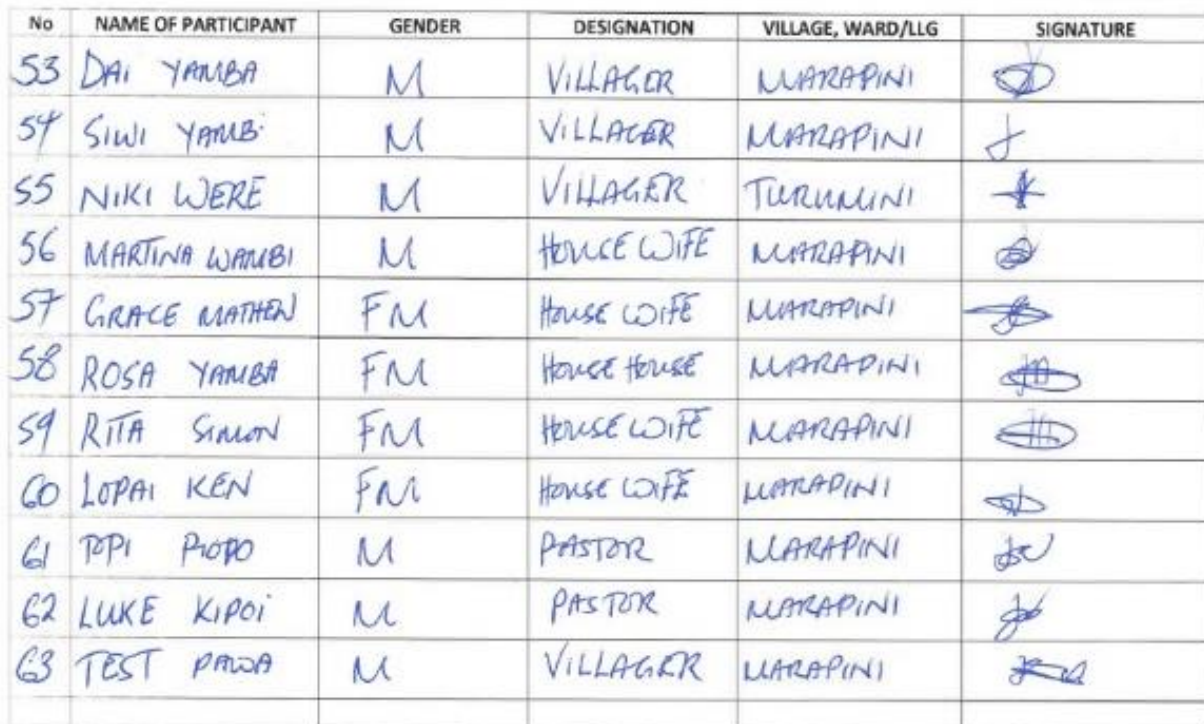 No NAME OF PARTICIPANT GENDER DESIGNATION VILLAGE, WARD/LLG SIGNATURE
53 DAI YAMBA M VILLAGER MARAPINI
54 SIWI YAMBI M VILLAGER MARAPINI
55 NIKI WERE M VILLAGER TURUMINI
56 MARTINA WAMBI M HOUSE WIFE MARAPINI
57 GRACE MATHEW FM HOUSE WIFE MARAPINI
58 ROSA YAMBA FM HOUSE HOUSE MARAPINI
59 RITA SIMON FM HOUSE WIFE MARAPINI
60 LOPAI KEN FM HOUSE WIFE MARAPINI
61 POPI PIOPO M PASTOR MARAPINI
62 LUKE KIPOI M PASTOR MARAPINI
63 TEST PAWA M VILLAGER MARAPINI